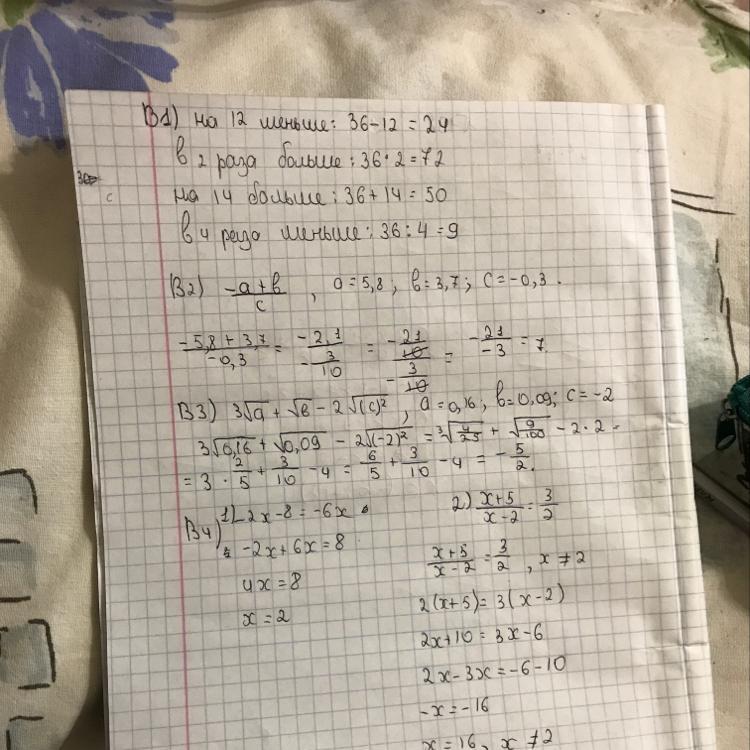 В1) на 12 меньше: 36-12=24
в 2 раза больше: 36·2=72
на 14 больше: 36+14=50
в 4 раза меньше: 36:4=9
В2) (-a+в)/c, a=5,8; в=3,7; c=-0,3.
(-5,8+3,7)/(-0,3) = (-2,1)/(-3/10) = (-21/10)/(-3/10) = -21/-3 = 7.
В3) 3√a + √в - 2√(c)², a=0,16; в=0,09; c=-2
3√0,16 + √0,09 - 2√(-2)² = 3√4/25 + √9/100 - 2·2 =
= 3·2/5 + 3/10 - 4 = 6/5 + 3/10 - 4 = -5/2.
В4) 1) -2x-8=-6x
-2x+6x=8
4x=8
x=2
2) (x+5)/(x-2) = 3/2
(x+5)/(x-2) = 3/2, x≠2
2(x+5)=3(x-2)
2x+10=3x-6
2x-3x=-6-10
-x=-16
x=16, x≠2